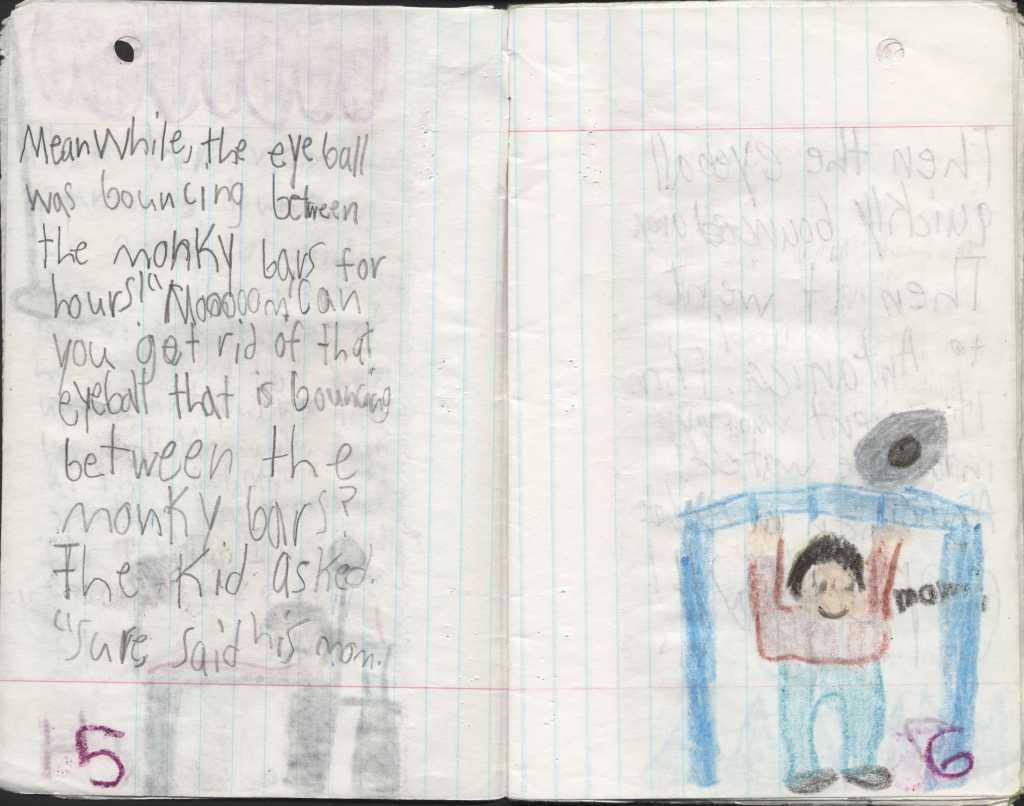 MeanWhile, the eyeball
was bouncing between
the monky bars for
hours! "Mooooom, Can
you get rid of that
eyeball that is bouncing
between the
monky bars?
The kid asked.
"sure, said his mom.
5
mom
6